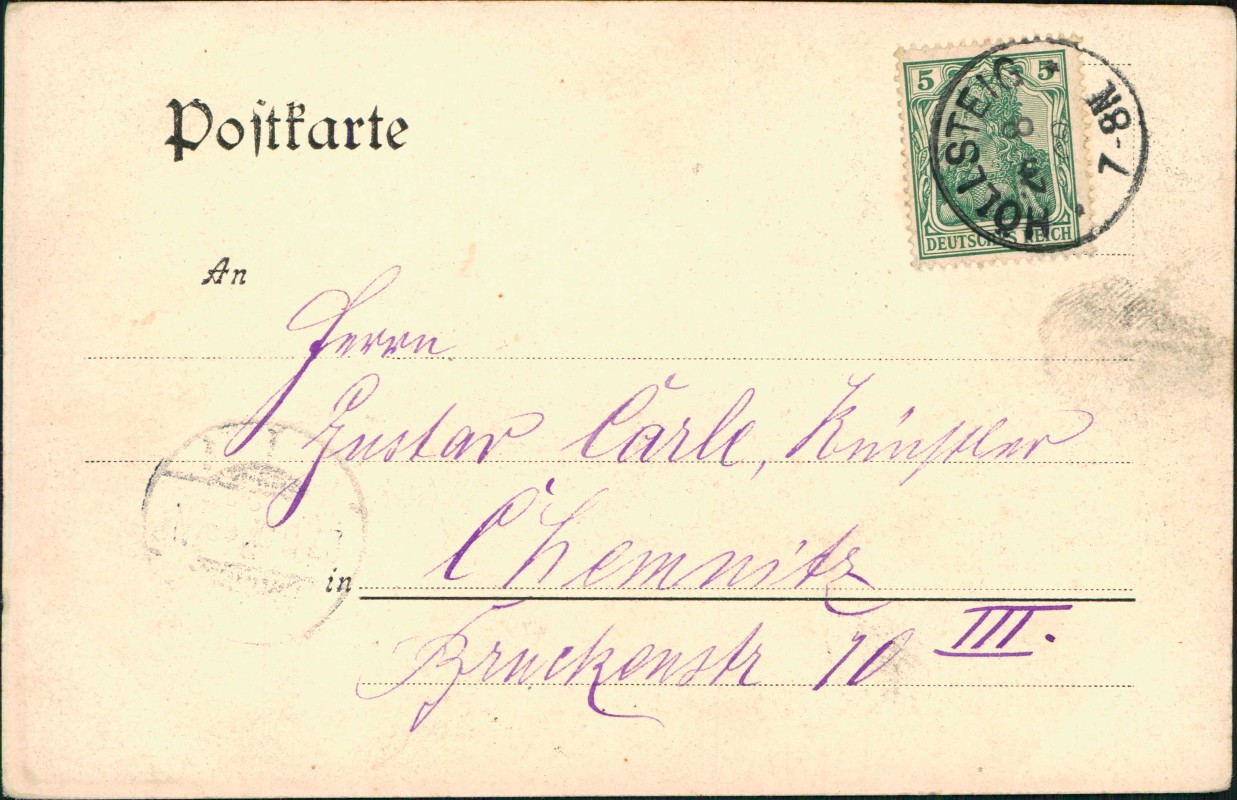 Postkarte
5 5
DEUTSCHES REICH
HÖLLSTEIG
8
N8-
7
An
Herrn
Gustav Carle, Künstler
in Chemnitz
Brückenstr 10 III.